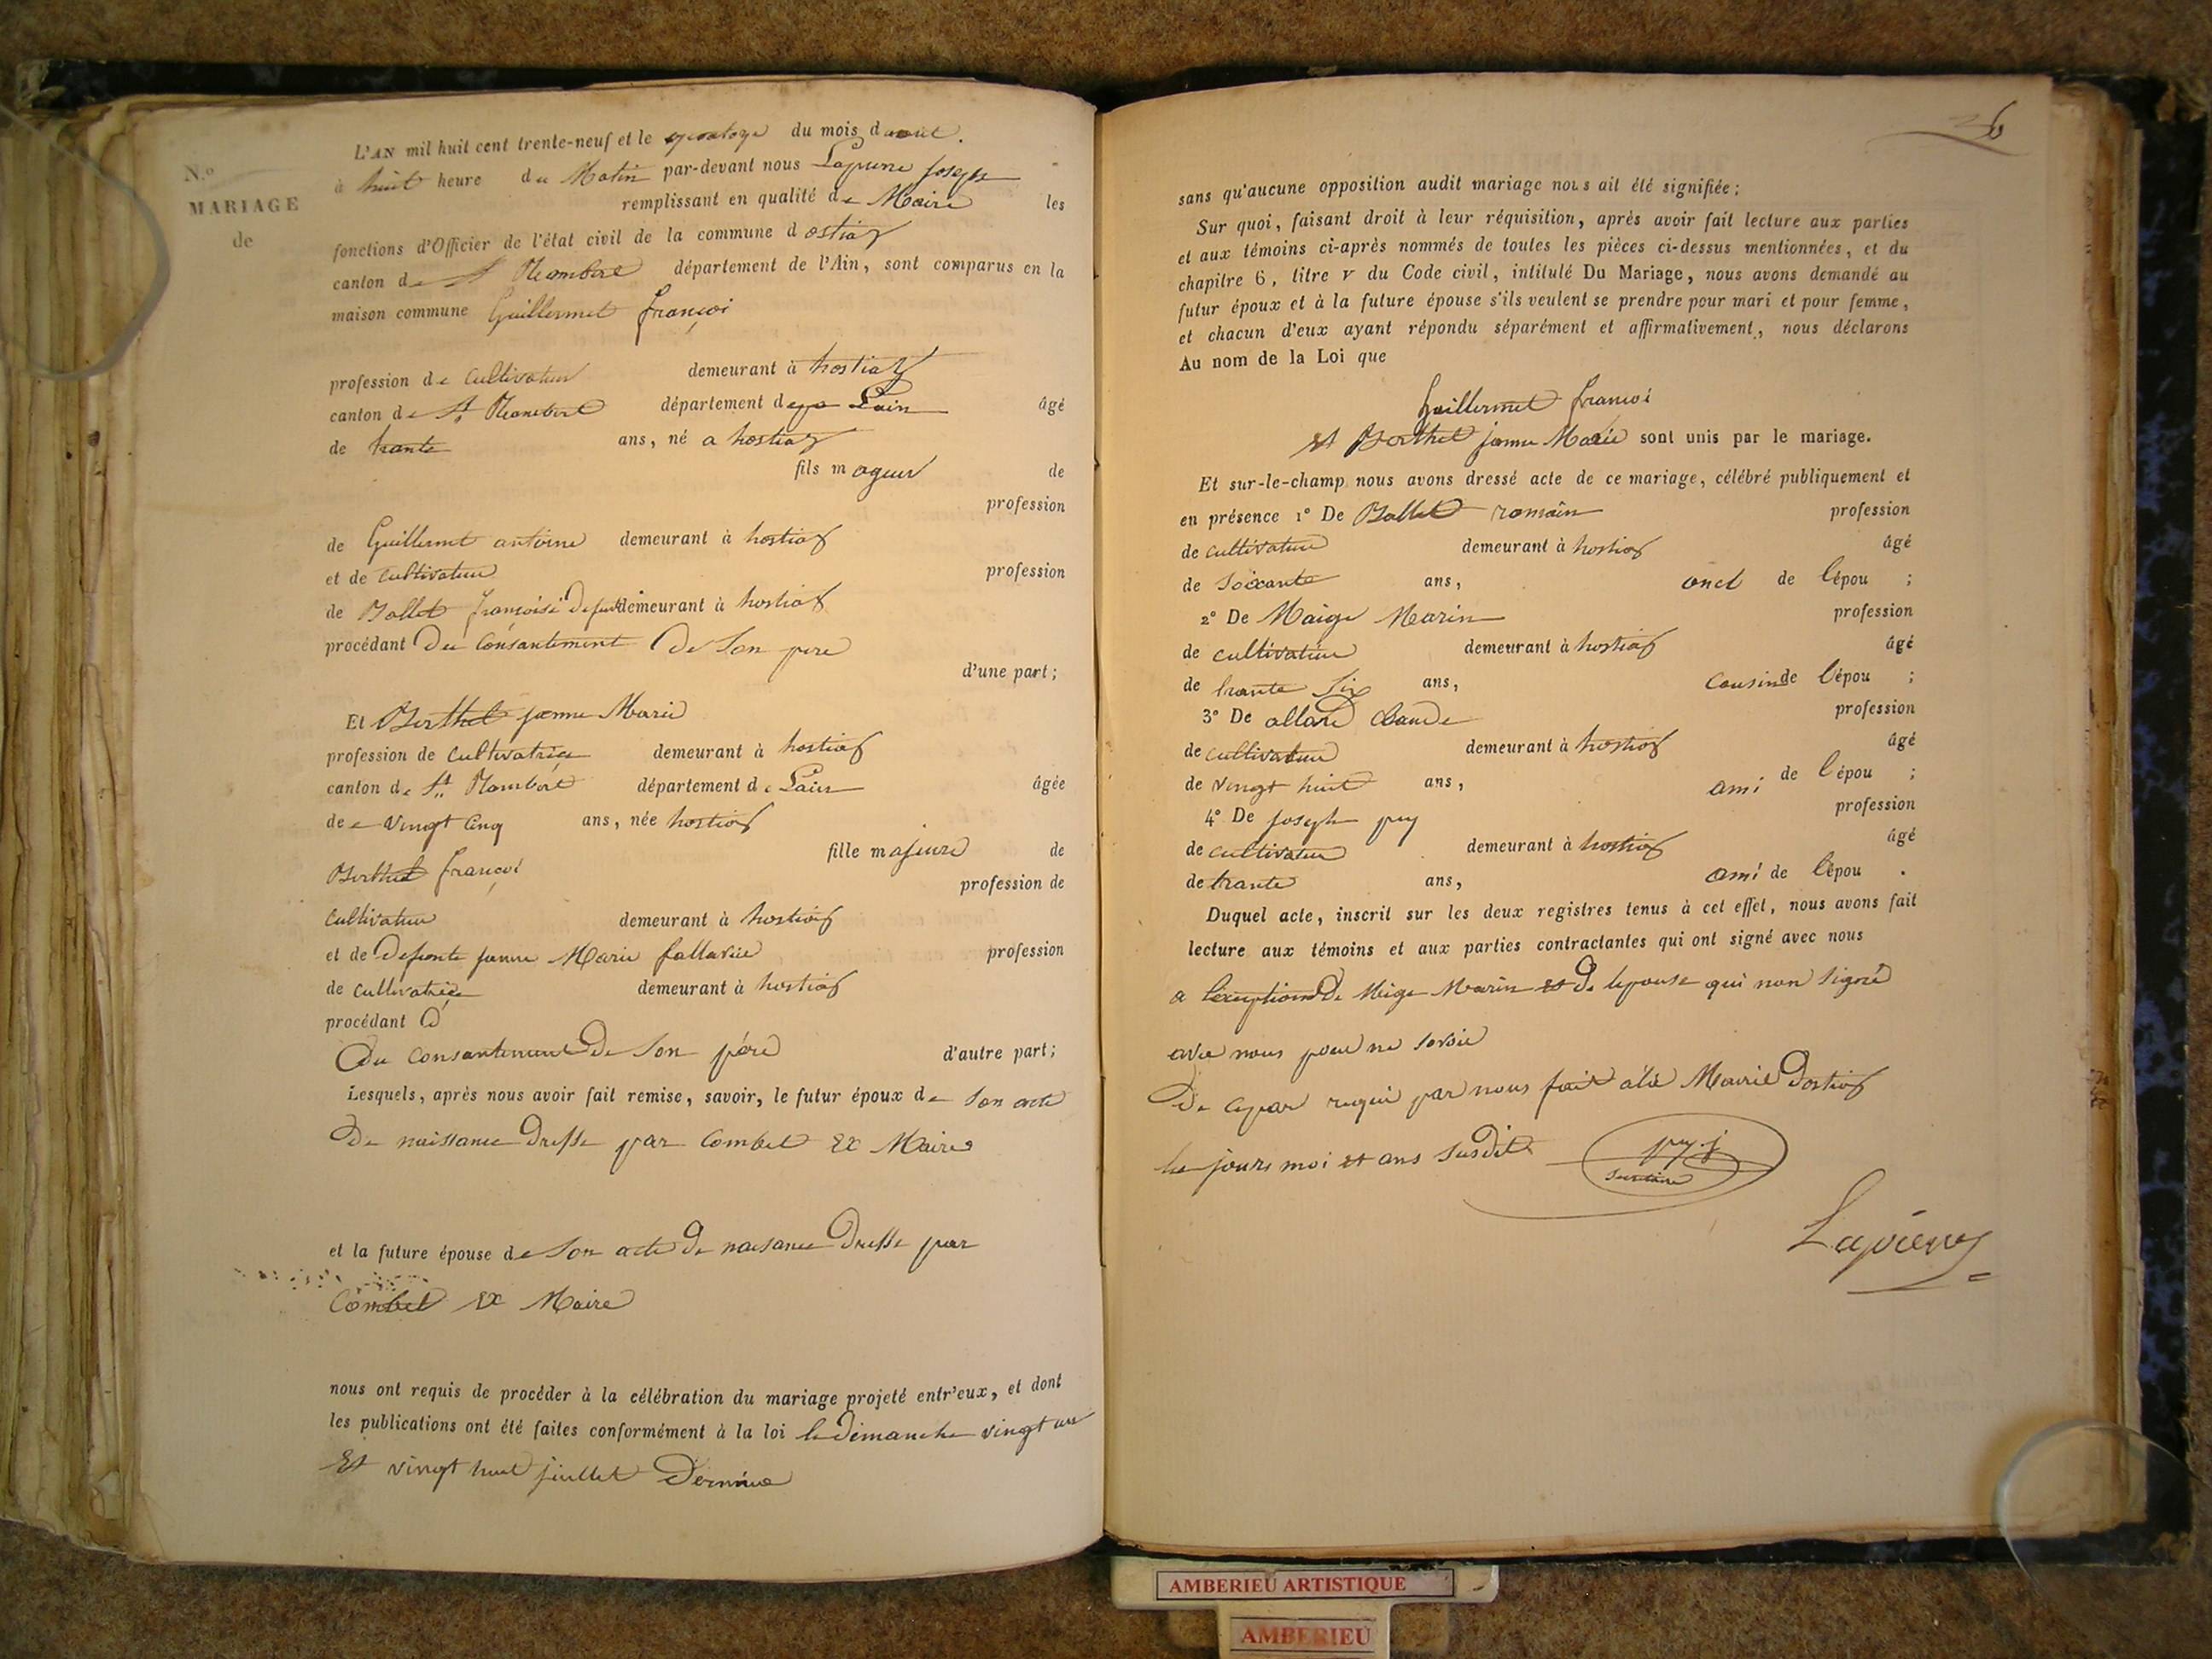 N.º
MARIAGE
de
L'AN mil huit cent trente-neuf et le quatorze du mois d aout.
à huit heure du Matin par-devant nous Lapierre joseph
remplissant en qualité de Maire les
fonctions d'Officier de l'état civil de la commune d ostiaz
canton de St Rambert département de l'Ain, sont comparus en la
maison commune Guillermet françoi
profession de Cultivateur demeurant à hostiaz
canton de St. Rambert département de Lain âgé
de trante ans, né a hostiaz
fils mageur de
profession
de Guillermet antoine demeurant à hostiaz
et de Cultivateur profession
de Ballet françoise defunte demeurant à hostiaz
procédant Du Consantement De Son pere
d'une part;
Et Berthet janne Marie
profession de cultivatrice demeurant à hostiaz
canton de St. Rambert département de Lain âgée
de vingt cinq ans, née hostiaz
fille majeure de
Berthet françoi
profession de
cultivateur demeurant à hostiaz
et de Defunte janne Marie fallavié profession
de cultivatrice demeurant à hostiaz
procédant d
Du consantement De Son pére d'autre part;
Lesquels, après nous avoir fait remise, savoir, le futur époux de Son acte
De naissance Dresse par Combet Ex Maire
et la future épouse de Son acte De naisance Dresse par
Combet Ex Maire
nous ont requis de procéder à la célébration du mariage projeté entr'eux, et dont
les publications ont été faites conformément à la loi le Dimanche vingt un
Et vingt huit juillet Dernier
26
sans qu'aucune opposition audit mariage nous ait été signifiée;
Sur quoi, faisant droit à leur réquisition, après avoir fait lecture aux parties
et aux témoins ci-après nommés de toutes les pièces ci-dessus mentionnées, et du
chapitre 6, titre V du Code civil, intitulé Du Mariage, nous avons demandé au
futur époux et à la future épouse s'ils veulent se prendre pour mari et pour femme,
et chacun d'eux ayant répondu séparément et affirmativement, nous déclarons
Au nom de la Loi que
Guillermet françoi
et Berthet janne Marie sont unis par le mariage.
Et sur-le-champ nous avons dressé acte de ce mariage, célébré publiquement et
en présence 1º De Ballet romain profession
de cultivateur demeurant à hostiaz âgé
de Soixante ans, oncl de lépou ;
2º De Maige Marin profession
de cultivateur demeurant à hostiaz âgé
de trante Six ans, cousin de lépou ;
3º De allard Claude profession
de cultivateur demeurant à hostiaz âgé
de vingt huit ans, ami de lépou ;
4º De joseph juy profession
de cultivateur demeurant à hostiaz âgé
de trante ans, ami de lépou .
Duquel acte, inscrit sur les deux registres tenus à cet effet, nous avons fait
lecture aux témoins et aux parties contractantes qui ont signé avec nous
a lexeptiond De Meige Marin et De lepouse qui non Signé
avec nous pour ne Savoir
De ce par requi par nous fait ala Mairie Dostiaz
les jours moi et ans Susdit
AMBERIEU ARTISTIQUE
AMBERIEU